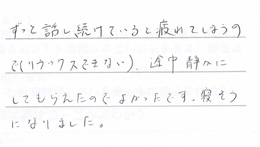 ずっと話し続けていると疲れてしまうの
で(リラックスできない)、途中静かに
してもらえたのでよかったです。寝そう
になりました。